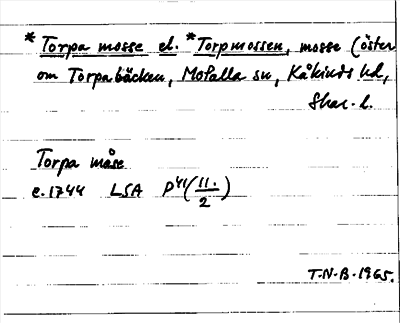 *Torpa mosse el. *Torpmossen, mosse (öster
om Torpabäcken, Mofalla sn, Kåkinds hd,
Skar. l.
Torpa måse
c. 1744 LSA P41(11./2)
T.N.B. 1965.